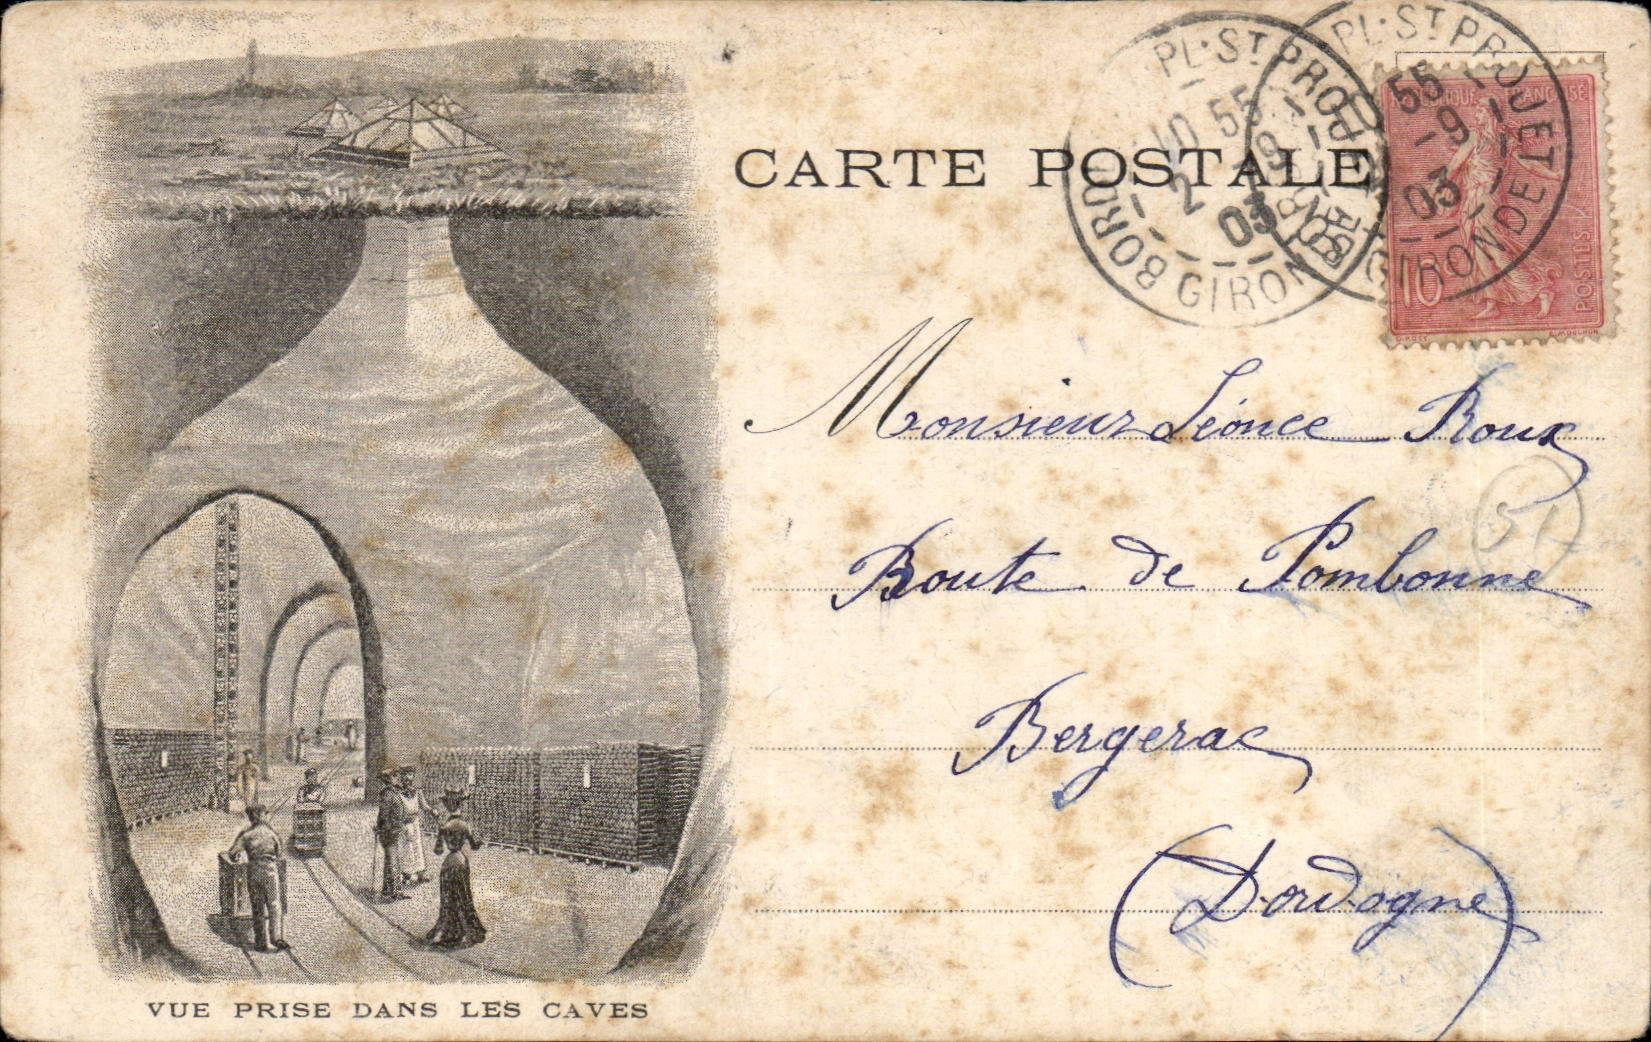 CARTE POSTALE
PL. ST PROJET
10 55
2 - 9
03
BORDEAUX GIRONDE
PL. ST PROJET
55
9
03
GIRONDE
RÉPUBLIQUE FRANÇAISE
POSTES
10
O. ROTY
E. MOUCHON
Monsieur Léonce Roux
Route de Pombonne
51
Bergerac
(Dordogne)
VUE PRISE DANS LES CAVES